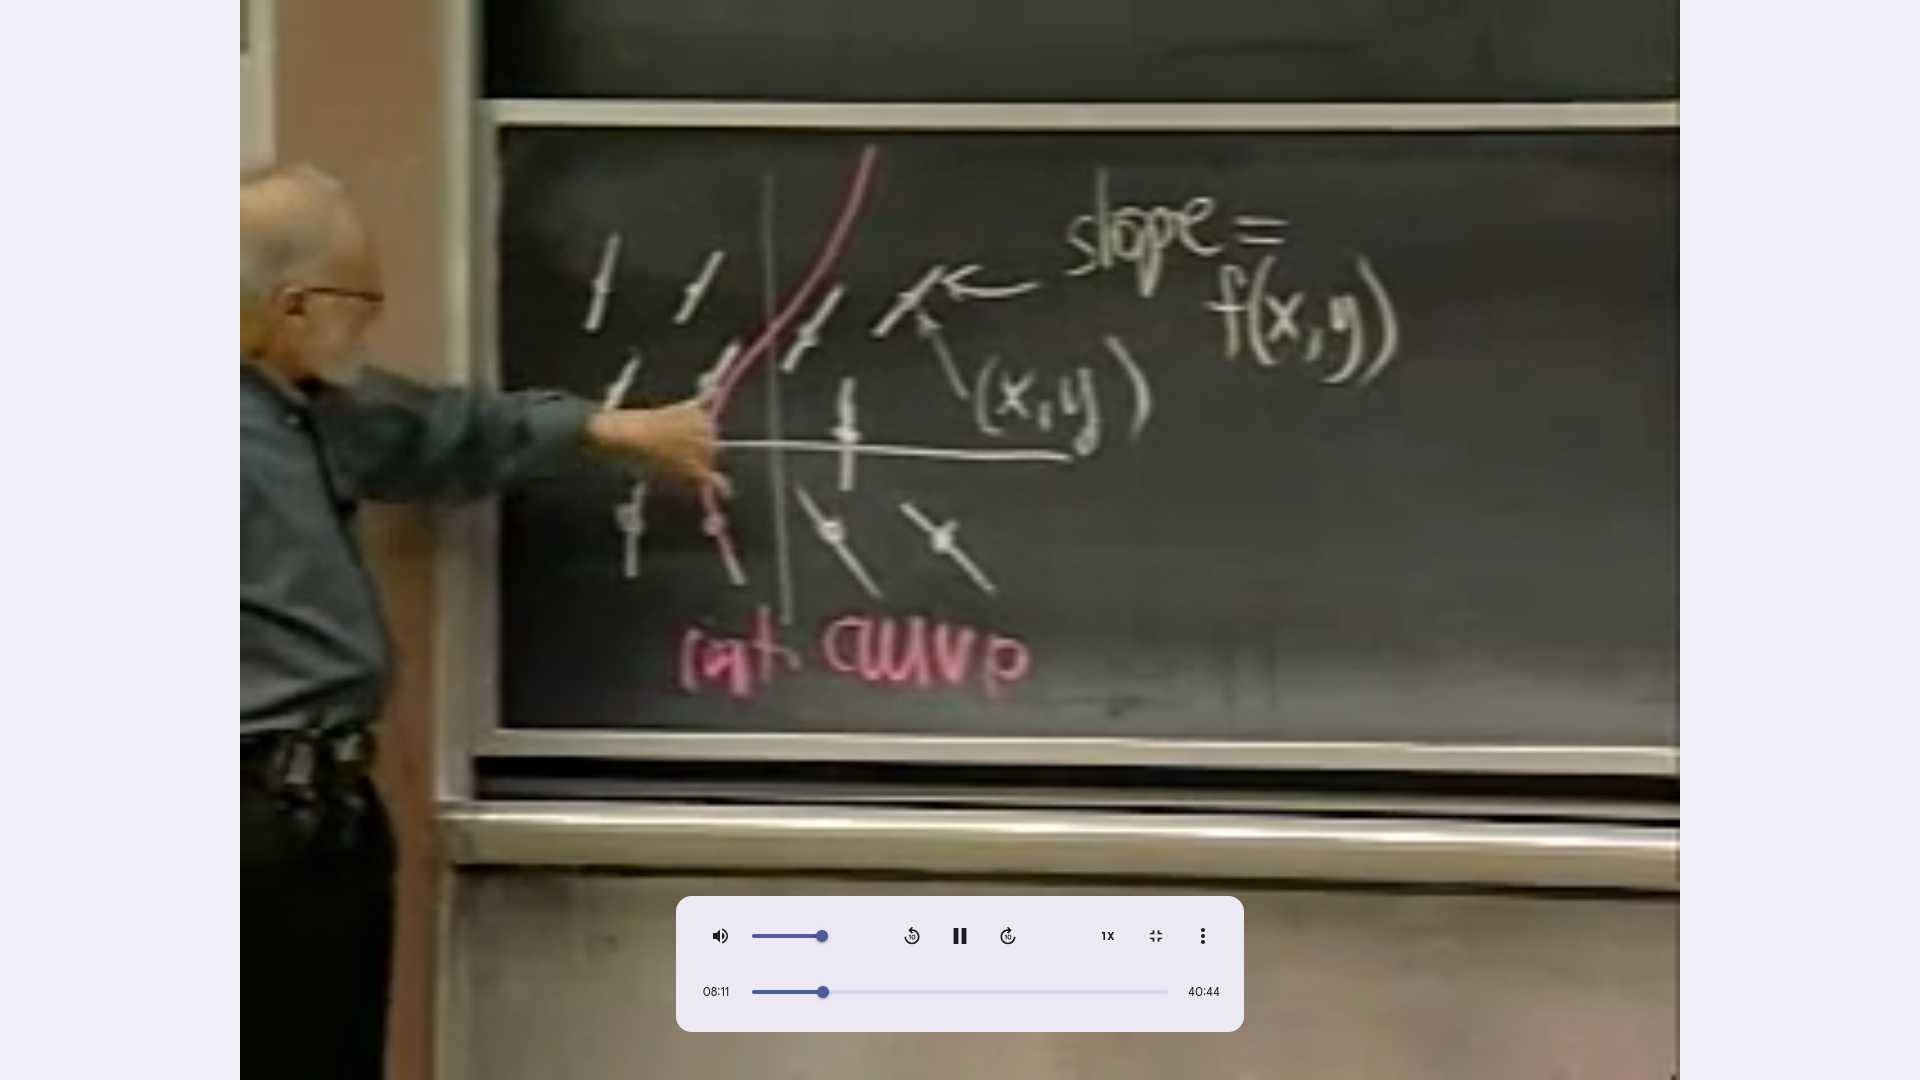 slope =
f(x,y)
(x,y)
int. curve
1X
08:11
40:44